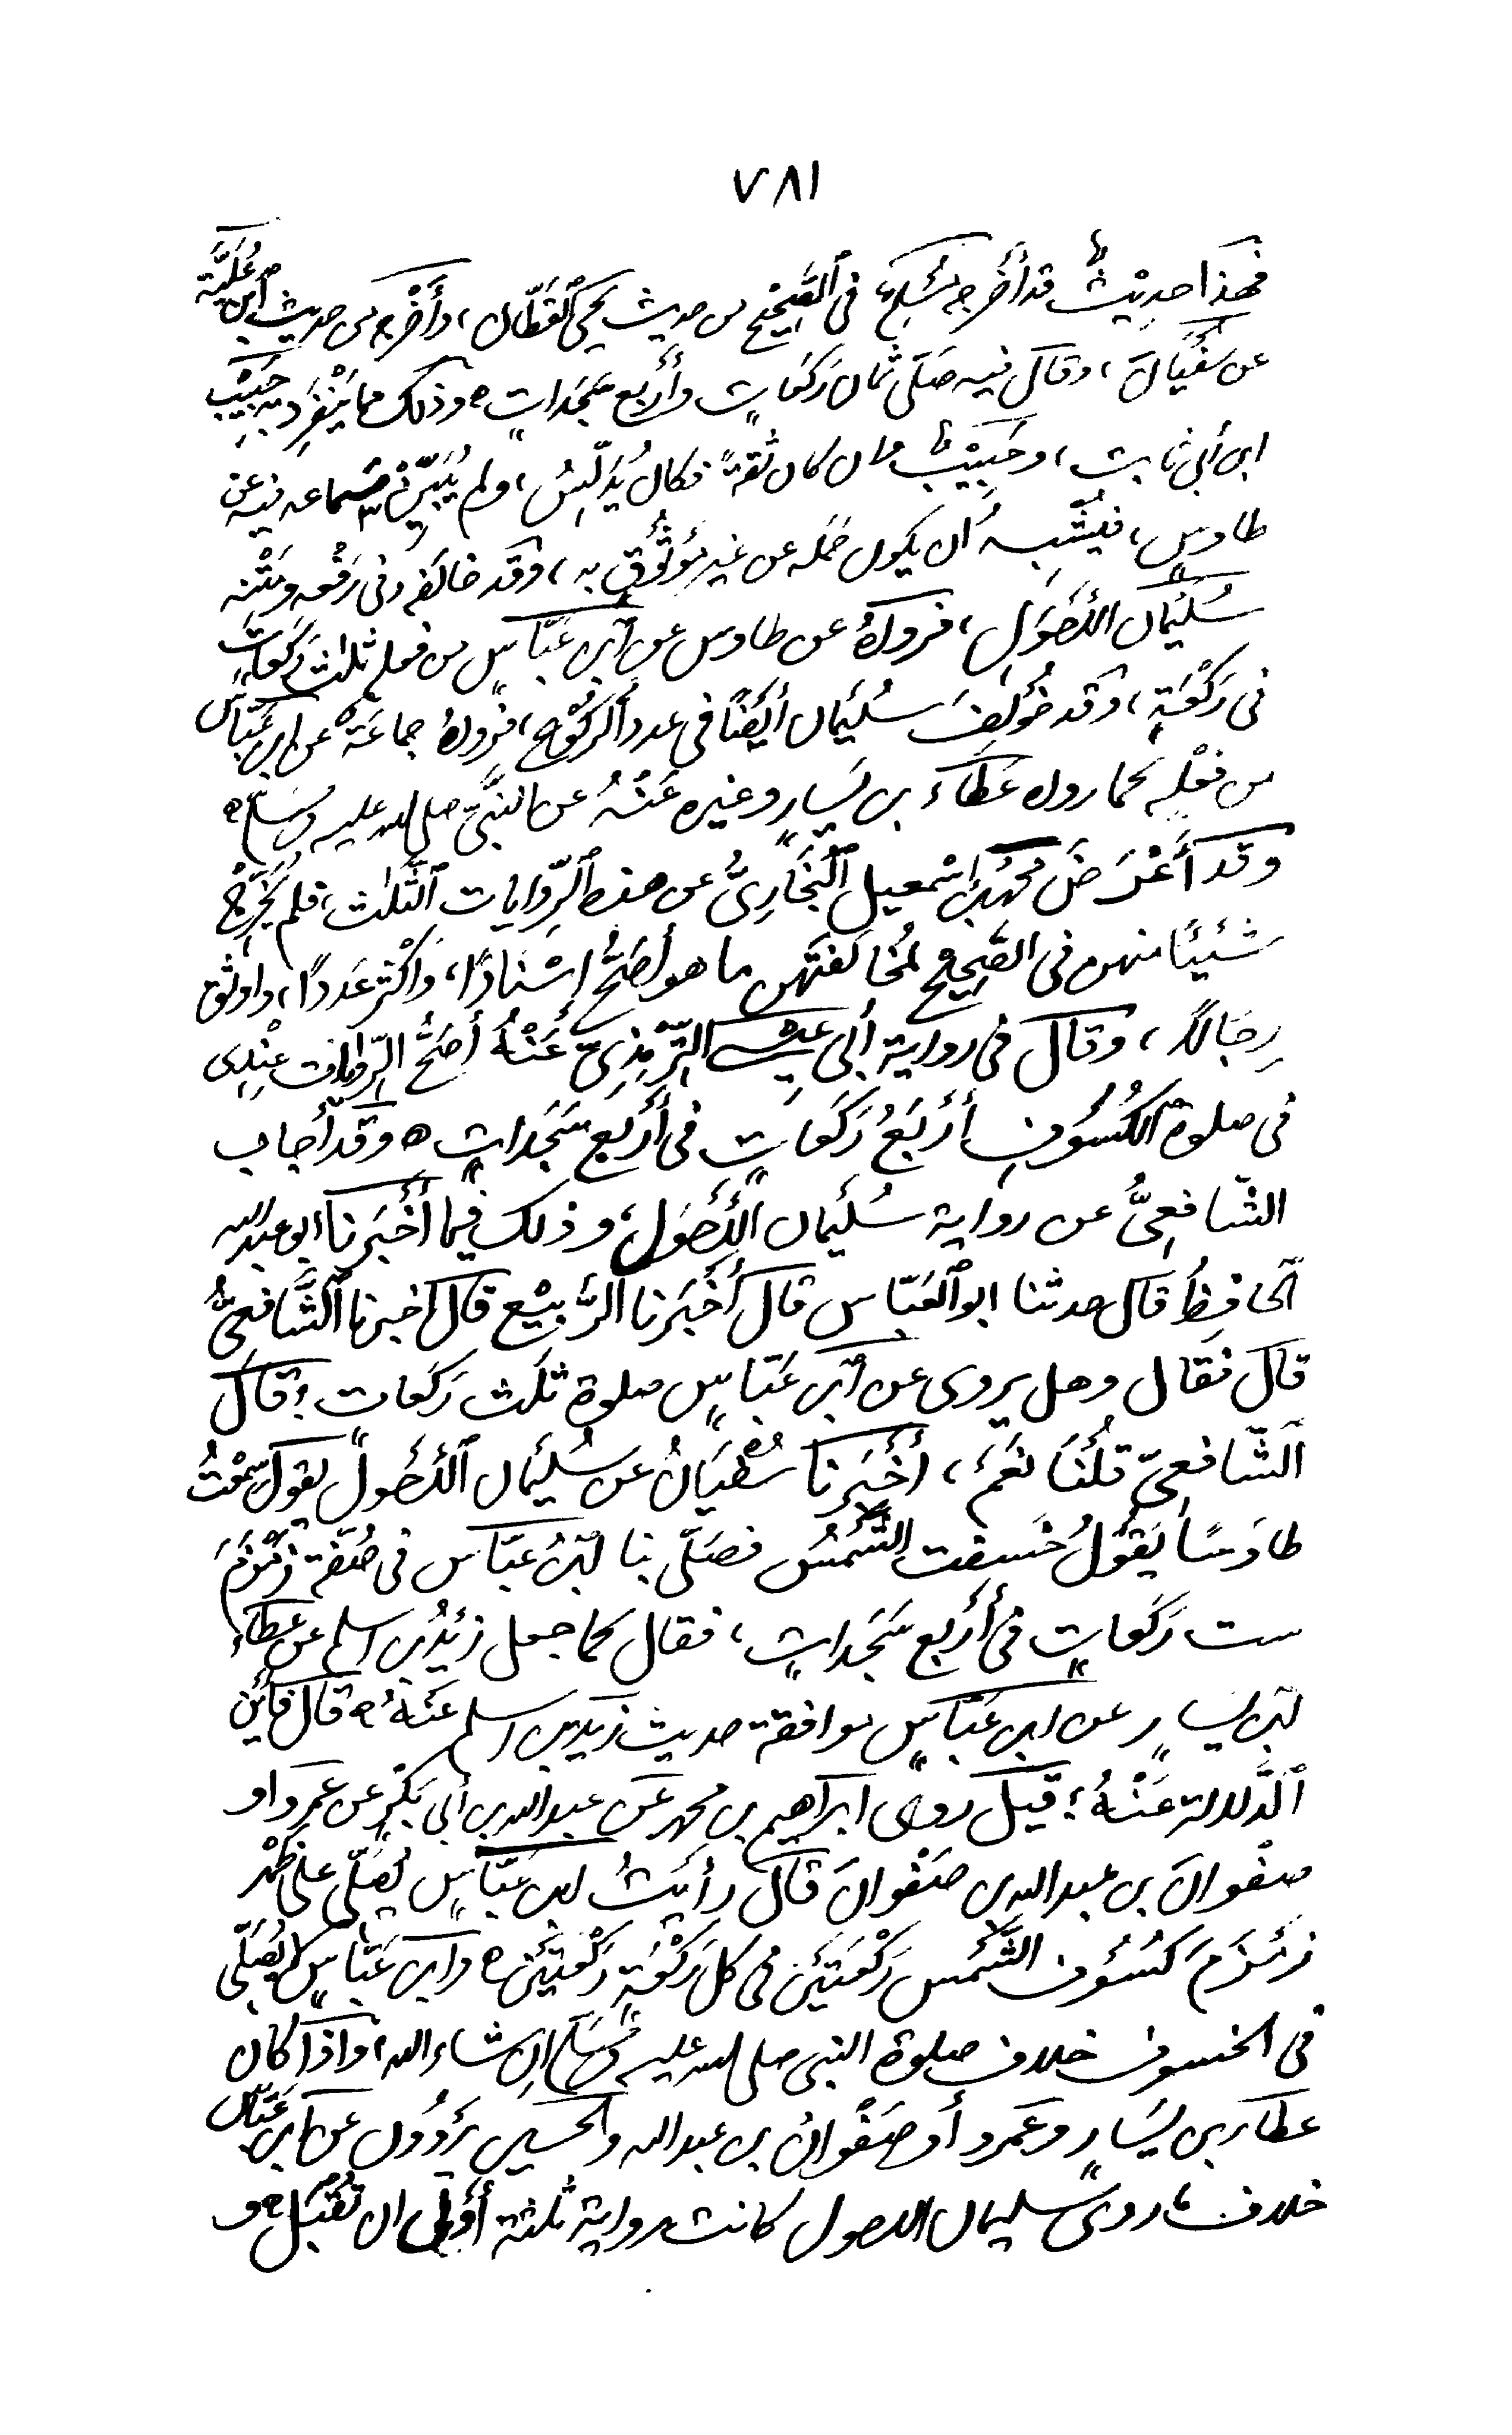 ٧٨١
فهذا حديثٌ قد أخرجه مُسْلِمٌ في الصَّحِيْحِ من حديث يحيى القَطَّان، وأَخْرجه من حديث ابن عُلَيَّة
عن سُفْيَانَ، وقال فيه صَلَّى ثمان رَكَعَاتٍ وأَرْبع سَجَدَاتٍ ه وذلك مما يَنْفَرِد به حَبِيْبُ
ابن أبي ثابت، وحَبِيْبٌ وان كان ثقةً فكان يُدَلِّسُ، ولم يُبَيِّنْ سَماعه فيه عن
طاوسٍ، فيُشْبِهُ أن يكون حَمَله عن غير مَوْثُوْقٍ به، وقَد خالَفَه في رَفْعه ومَتْنه
سُلَيْمان الأَحْوَلِ، فرواهُ عن طاوس عن ابن عَبَّاسٍ من فعله ثلاث رَكَعاتٍ
في رَكْعَةٍ، وقَد خُوْلِفَ سُلَيْمان أَيْضًا في عدد الرُّكُوْع، فرواهُ جماعَةٌ عن ابن عَبَّاسٍ
من فِعْلِه كما رواه عَطَاءُ بن يَسَارٍ وغيره عَنْهُ عن النَّبيِّ صلى الله عليه وسلم ه
وقد أَعْرَضَ محمد بن اسْمعيل البُخَارِيُّ عن هذه الرِّوايات الثَّلٰث، فلم يُخَرِّجْ
شَيْئًا منهن في الصَّحِيْحِ لمُخالَفَتهن ما هو أَصَحُّ إسْنادًا، وأكْثر عَددًا، واوثق
رِجَالاً، وقال في رواية أبي عيسى التِّرْمِذِيّ عَنْهُ أَصَحُّ الرِّوايات عِنْدِي
في صلوة الكُسُوْفِ أَرْبَعُ رَكَعَاتٍ في أَرْبَع سَجَدَاتٍ ه وقَد أجاب
الشَّافِعِيُّ عن رواية سُلَيْمان الأَحْوَل، وذلك فيما أَخْبَرنا ابو عبد الله
الحافِظُ قال حدثنا ابو العَبّاس قال أَخْبَرنا الرَّبِيْع قال اخبرنا الشَّافِعِيُّ
قال فقال وهل يروى عن ابن عَبّاسٍ صلوة ثلٰث رَكَعات؟ قال
الشّافعيّ قلْنَا نَعَمْ، أَخْبَرنَا سُفْيَانُ عن سُلَيْمان الأَحْول يقول سَمِعْتُ
طاوسًا يَقُوْلُ خَسفت الشَّمْسُ فصَلَّى بنا ابنُ عبّاس في صُفَّة زَمْزَمَ
ست رَكَعاتٍ في أَرْبع سَجَداتٍ، فقال كما جعل زَيْدُ بن اسلم عن عطاء
ابن يسارٍ عن ابن عَبَّاسٍ موافقة حديث زيد بن اسلم عَنْهُ ه قال فأَيْنَ
الدَّلالة عَنْهُ؟ قيل روى ابراهيم بن محمد عَن عبد الله بن أبي بَكْرٍ عن عمرو او
صفوانَ بن عبد الله بن صَفْوانَ قال رأَيْتُ ابن عَبّاسٍ يُصَلّي على ظَهْر
زَمْزَمَ كسُوْف الشَّمْس رَكْعَتَيْن في كل رَكْعَةٍ رَكْعَتَيْن ه وابن عَبَّاسٍ لا يُصَلّي
في الخسوف خلاف صلوة النبي صلى الله عليه وسلم ان شاء الله، واذا كان
عطاء بن يَسَارٍ وعَمرو أو صَفْوانُ بن عبد الله والحسين يَرْوُوْن عن ابن عَبَّاسٍ
خلاف ما روى سليمان الاحول كانت رواية ثلٰثة أَوْلٰى ان تُقْبَل ه و